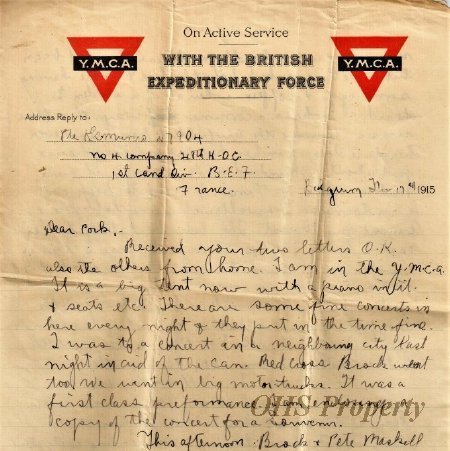 On Active Service
WITH THE BRITISH
EXPEDITIONARY FORCE
Y.M.C.A.
Y.M.C.A.
Address Reply to:
Pte 27904
No 4. Company
1st Cand Div. B.E.F
France.
Nov 17th 1915
Dear Pork,-
Received your two letters O.K.
also the others from home. I am in the Y.M.C.A.
It is a big tent now with a piano in it.
& seats etc. There are some fine concerts in
here every night & they put in the time fine.
I was to a concert in a neighbouring city last
night in aid of the Can. Red Cross Brock went
too we went in big motor trucks. It was a
first class preformance I am enclosing a
copy of the concert for a souvenir.
This afternoon Brock & Pete Maskell
OHS Property